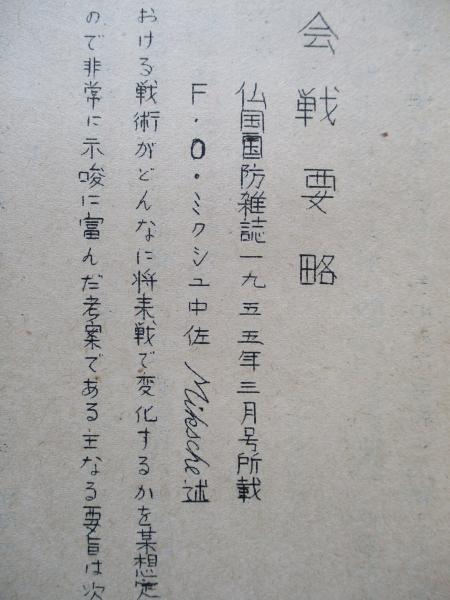 会戦要略
仏国国防雑誌一九五五年三月号所載
F・O・ミクシュ中佐 Miksche 述
おける戦術がどんなに将来戦で変化するかを某想定
ので非常に示唆に富んだ考案である主なる要旨は次